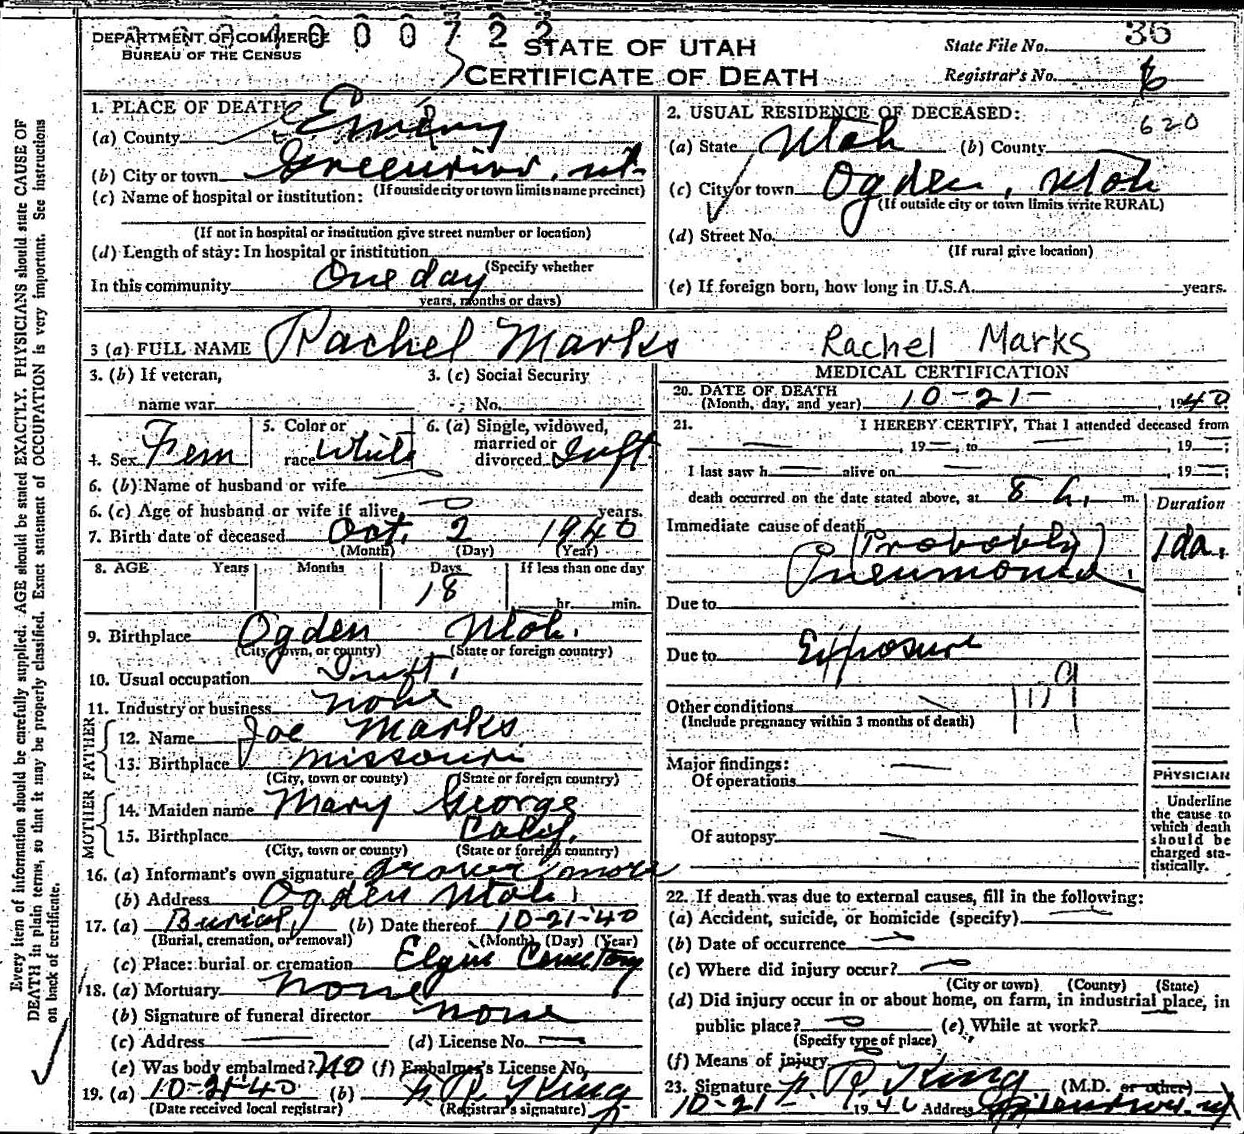 DEPARTMENT OF COMMERCE
BUREAU OF THE CENSUS
000722
STATE OF UTAH
CERTIFICATE OF DEATH
State File No. 36
Registrar's No. 6
1. PLACE OF DEATH
(a) County Emery
(b) City or town Greenriver, ut.
(If outside city or town limits name precinct)
(c) Name of hospital or institution:
(If not in hospital or institution give street number or location)
(d) Length of stay: In hospital or institution
(Specify whether
In this community One day
years, months or days)
2. USUAL RESIDENCE OF DECEASED:
620
(a) State Utah (b) County
(c) City or town Ogden, Utah
(If outside city or town limits write RURAL)
(d) Street No.
(If rural give location)
(e) If foreign born, how long in U.S.A. years.
3 (a) FULL NAME Rachel Marks Rachel Marks
3. (b) If veteran, 3. (c) Social Security
name war No.
4. Sex Fem 5. Color or race White 6. (a) Single, widowed, married or divorced Inft.
6. (b) Name of husband or wife
6. (c) Age of husband or wife if alive years.
7. Birth date of deceased Oct. 2 1940
(Month) (Day) (Year)
8. AGE Years Months Days If less than one day
18 hr. min.
9. Birthplace Ogden Utah.
(City, town, or county) (State or foreign country)
10. Usual occupation Inft.
11. Industry or business none
FATHER
12. Name Joe Marks
13. Birthplace Missouri
(City, town or county) (State or foreign country)
MOTHER
14. Maiden name Mary George
15. Birthplace Calif.
(City, town or county) (State or foreign country)
16. (a) Informant's own signature Grover more
(b) Address Ogden Utah
17. (a) Burial (b) Date thereof 10-21-40
(Burial, cremation, or removal) (Month) (Day) (Year)
(c) Place: burial or cremation Elgin Cemetery
18. (a) Mortuary none
(b) Signature of funeral director none
(c) Address (d) License No.
(e) Was body embalmed? no (f) Embalmer's License No.
19. (a) 10-21-40 (b) King
(Date received local registrar) (Registrar's signature)
MEDICAL CERTIFICATION
20. DATE OF DEATH
(Month, day, and year) 10-21-, 1940
21. I HEREBY CERTIFY, That I attended deceased from
, 19 , to , 19 ;
I last saw h alive on , 19 ;
death occurred on the date stated above, at 8 m.
Duration
Immediate cause of death (Probably)
Pneumonia 1 da.
Due to
Due to Exposure
Other conditions
(Include pregnancy within 3 months of death)
Major findings:
Of operations
Of autopsy
PHYSICIAN
Underline
the cause to
which death
should be
charged sta-
tistically.
22. If death was due to external causes, fill in the following:
(a) Accident, suicide, or homicide (specify)
(b) Date of occurrence
(c) Where did injury occur?
(City or town) (County) (State)
(d) Did injury occur in or about home, on farm, in industrial place, in
public place? (e) While at work?
(Specify type of place)
(f) Means of injury
23. Signature King (M.D. or other)
10-21- 1940 Address Greenriver, ut
Every item of information should be carefully supplied. AGE should be stated EXACTLY. PHYSICIANS should state CAUSE OF
DEATH in plain terms, so that it may be properly classified. Exact statement of OCCUPATION is very important. See instructions
on back of certificate.